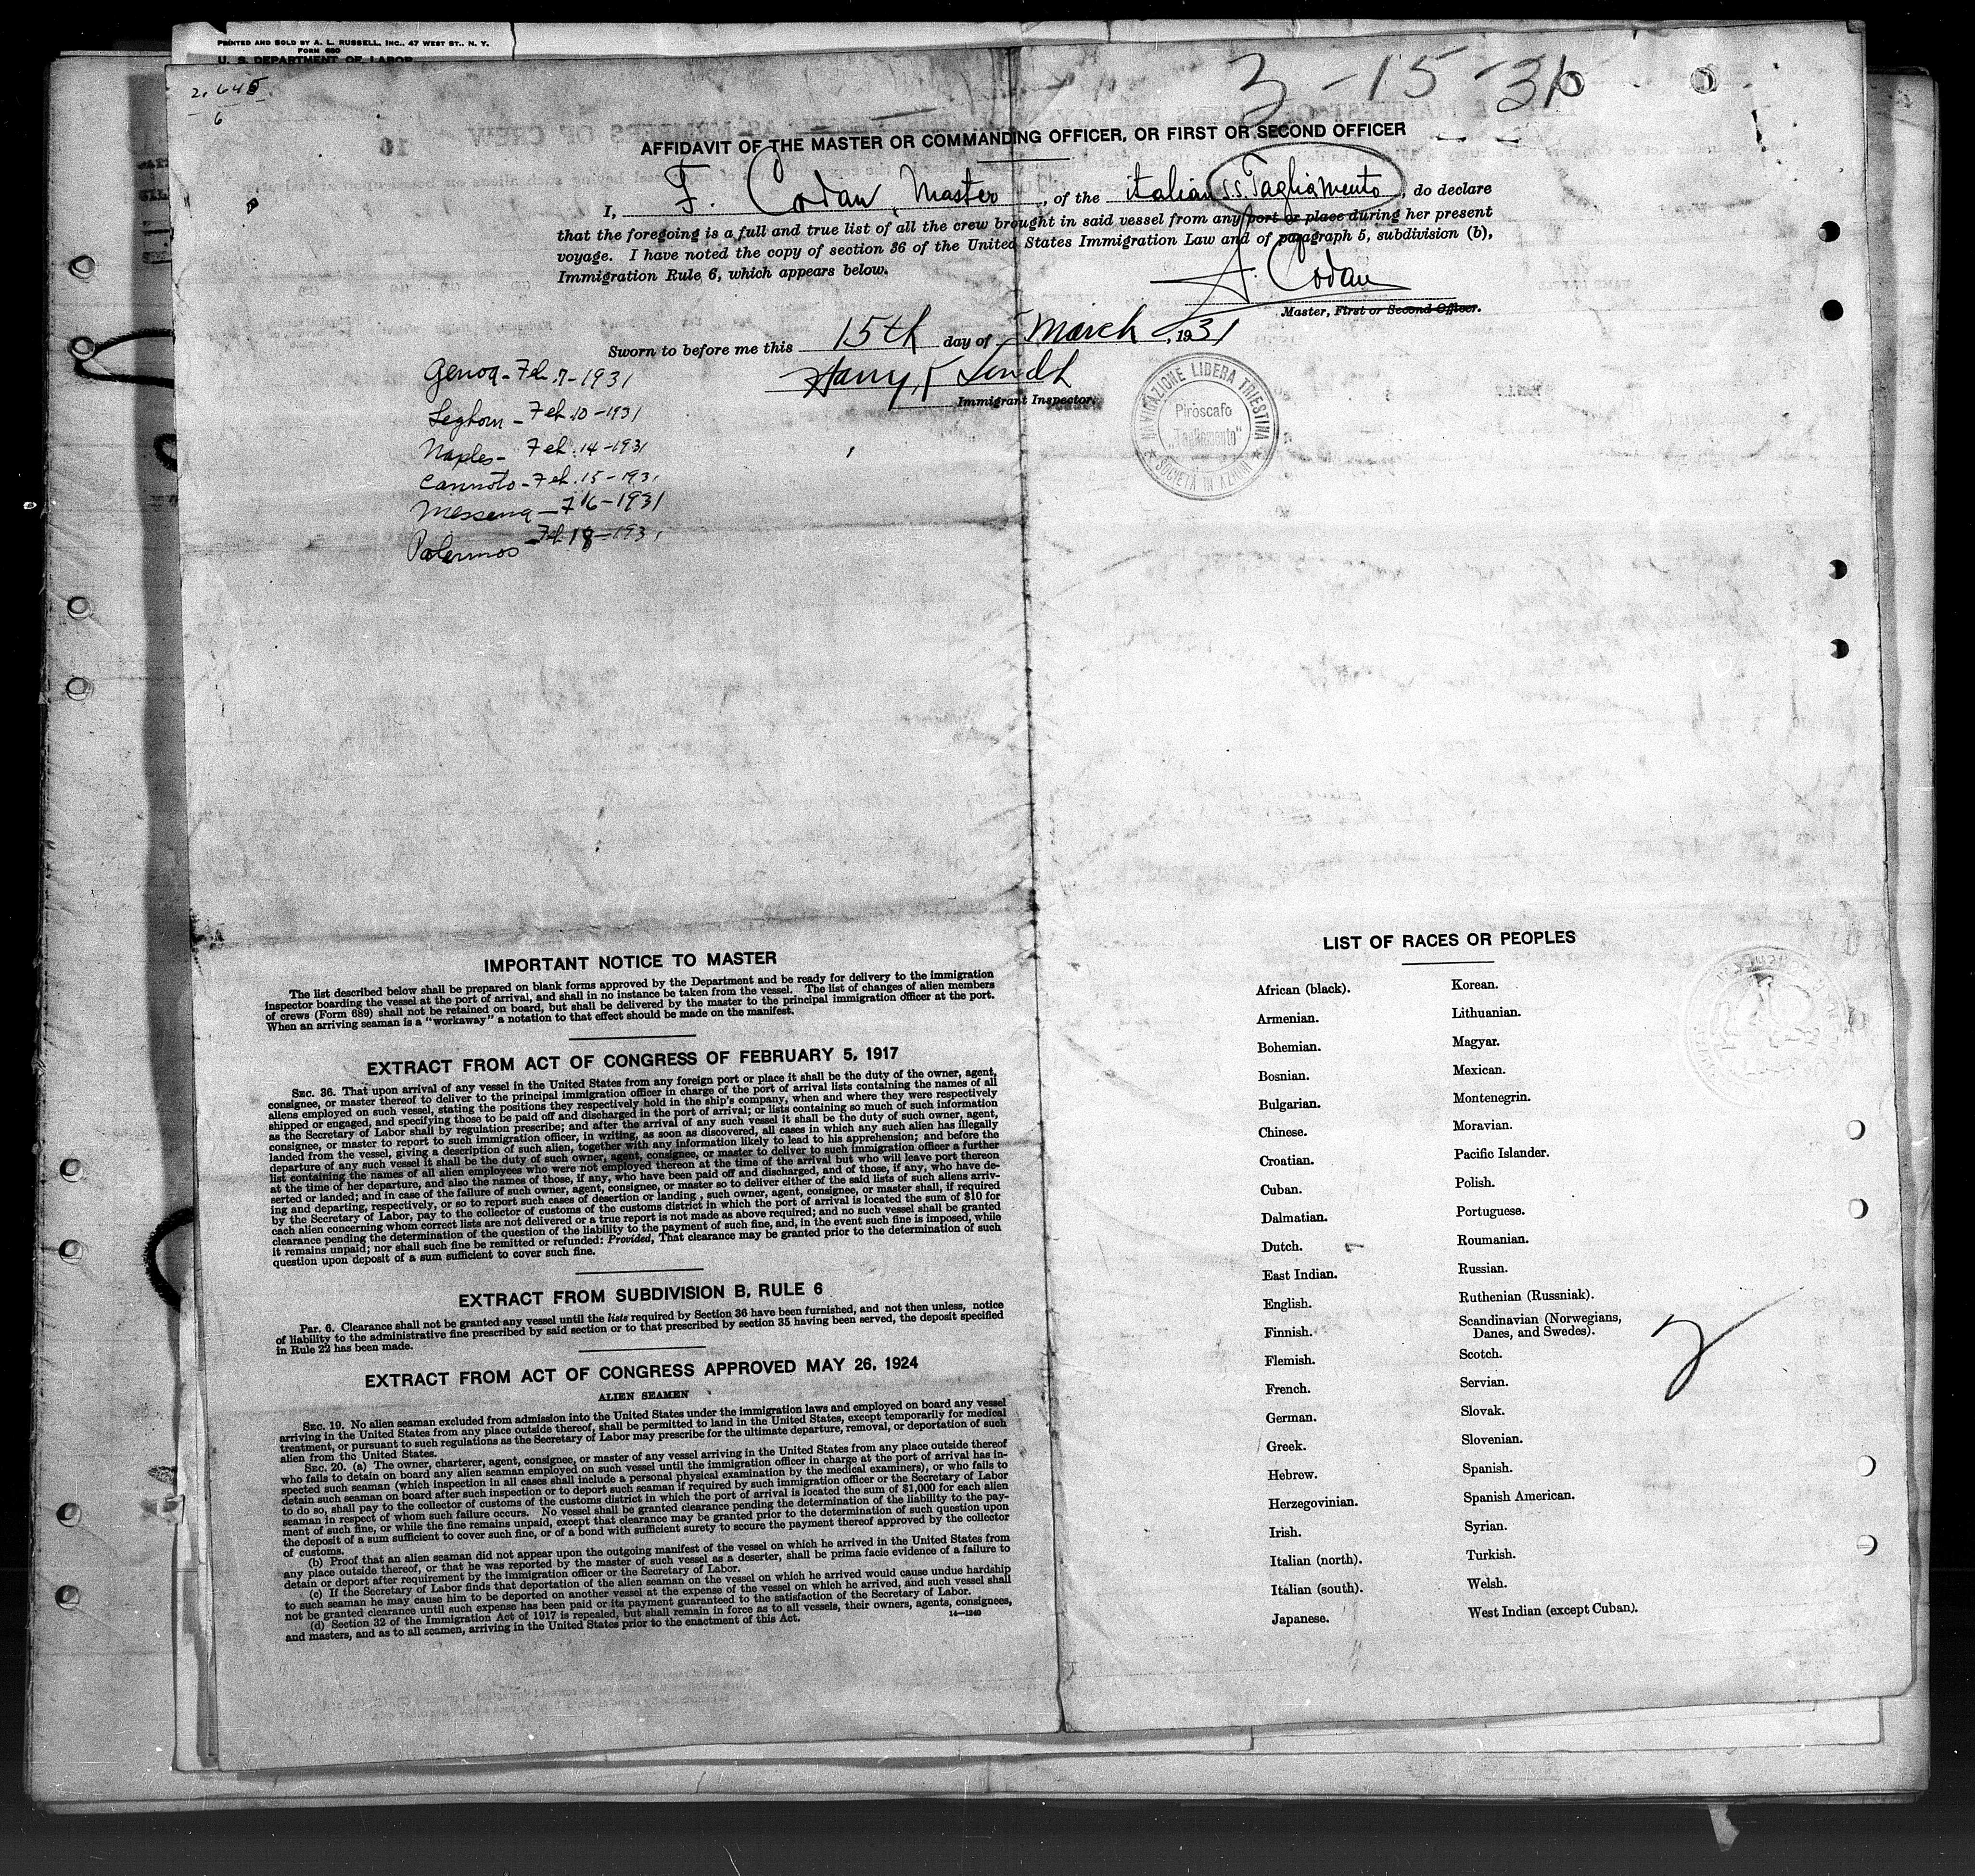 PRINTED AND SOLD BY A. L. RUSSELL, INC., 47 WEST ST., N. Y.
FORM 680
U. S. DEPARTMENT OF LABOR
2.645
6
3-15-31
AFFIDAVIT OF THE MASTER OR COMMANDING OFFICER, OR FIRST OR SECOND OFFICER
I, F. Codan, Master, of the italian S.S. Tagliamento, do declare
that the foregoing is a full and true list of all the crew brought in said vessel from any port or place during her present
voyage. I have noted the copy of section 36 of the United States Immigration Law and of paragraph 5, subdivision (b),
Immigration Rule 6, which appears below.
F. Codan
Master, First or Second Officer.
Sworn to before me this 15th day of March, 1931
Harry F
Immigrant Inspector.
NAVIGAZIONE LIBERA TRIESTINA
Piroscafo
„Tagliamento"
SOCIETÀ IN AZIONI
Genoa - Feb. 7-1931
Leghorn - Feb 10-1931
Naples - Feb. 14-1931
Feb. 15-1931
Messena - F 16-1931
Palermos Feb 18-1931
IMPORTANT NOTICE TO MASTER
The list described below shall be prepared on blank forms approved by the Department and be ready for delivery to the immigration
inspector boarding the vessel at the port of arrival, and shall in no instance be taken from the vessel. The list of changes of alien members
of crews (Form 689) shall not be retained on board, but shall be delivered by the master to the principal immigration officer at the port.
When an arriving seaman is a "workaway" a notation to that effect should be made on the manifest.
EXTRACT FROM ACT OF CONGRESS OF FEBRUARY 5, 1917
SEC. 36. That upon arrival of any vessel in the United States from any foreign port or place it shall be the duty of the owner, agent,
consignee, or master thereof to deliver to the principal immigration officer in charge of the port of arrival lists containing the names of all
aliens employed on such vessel, stating the positions they respectively hold in the ship's company, when and where they were respectively
shipped or engaged, and specifying those to be paid off and discharged in the port of arrival; or lists containing so much of such information
as the Secretary of Labor shall by regulation prescribe; and after the arrival of any such vessel it shall be the duty of such owner, agent,
consignee, or master to report to such immigration officer, in writing, as soon as discovered, all cases in which any such alien has illegally
landed from the vessel, giving a description of such alien, together with any information likely to lead to his apprehension; and before the
departure of any such vessel it shall be the duty of such owner, agent, consignee, or master to deliver to such immigration officer a further
list containing the names of all alien employees who were not employed thereon at the time of the arrival but who will leave port thereon
at the time of her departure, and also the names of those, if any, who have been paid off and discharged, and of those, if any, who have de-
serted or landed; and in case of the failure of such owner, agent, consignee, or master so to deliver either of the said lists of such aliens arriv-
ing and departing, respectively, or so to report such cases of desertion or landing, such owner, agent, consignee, or master shall, if required
by the Secretary of Labor, pay to the collector of customs of the customs district in which the port of arrival is located the sum of $10 for
each alien concerning whom correct lists are not delivered or a true report is not made as above required; and no such vessel shall be granted
clearance pending the determination of the question of the liability to the payment of such fine, and, in the event such fine is imposed, while
it remains unpaid; nor shall such fine be remitted or refunded: Provided, That clearance may be granted prior to the determination of such
question upon deposit of a sum sufficient to cover such fine.
EXTRACT FROM SUBDIVISION B, RULE 6
Par. 6. Clearance shall not be granted any vessel until the lists required by Section 36 have been furnished, and not then unless, notice
of liability to the administrative fine prescribed by said section or to that prescribed by section 35 having been served, the deposit specified
in Rule 22 has been made.
EXTRACT FROM ACT OF CONGRESS APPROVED MAY 26, 1924
ALIEN SEAMEN
SEC. 19. No alien seaman excluded from admission into the United States under the immigration laws and employed on board any vessel
arriving in the United States from any place outside thereof, shall be permitted to land in the United States, except temporarily for medical
treatment, or pursuant to such regulations as the Secretary of Labor may prescribe for the ultimate departure, removal, or deportation of such
alien from the United States.
SEC. 20. (a) The owner, charterer, agent, consignee, or master of any vessel arriving in the United States from any place outside thereof
who fails to detain on board any alien seaman employed on such vessel until the immigration officer in charge at the port of arrival has in-
spected such seaman (which inspection in all cases shall include a personal physical examination by the medical examiners), or who fails to
detain such seaman on board after such inspection or to deport such seaman if required by such immigration officer or the Secretary of Labor
to do so, shall pay to the collector of customs of the customs district in which the port of arrival is located the sum of $1,000 for each alien
seaman in respect of whom such failure occurs. No vessel shall be granted clearance pending the determination of the liability to the pay-
ment of such fine, or while the fine remains unpaid, except that clearance may be granted prior to the determination of such question upon
the deposit of a sum sufficient to cover such fine, or of a bond with sufficient surety to secure the payment thereof approved by the collector
of customs.
(b) Proof that an alien seaman did not appear upon the outgoing manifest of the vessel on which he arrived in the United States from
any place outside thereof, or that he was reported by the master of such vessel as a deserter, shall be prima facie evidence of a failure to
detain or deport after requirement by the immigration officer or the Secretary of Labor.
(c) If the Secretary of Labor finds that deportation of the alien seaman on the vessel on which he arrived would cause undue hardship
to such seaman he may cause him to be deported on another vessel at the expense of the vessel on which he arrived, and such vessel shall
not be granted clearance until such expense has been paid or its payment guaranteed to the satisfaction of the Secretary of Labor.
(d) Section 32 of the Immigration Act of 1917 is repealed, but shall remain in force as to all vessels, their owners, agents, consignees,
and masters, and as to all seamen, arriving in the United States prior to the enactment of this Act.
14—1240
LIST OF RACES OR PEOPLES
African (black).
Armenian.
Bohemian.
Bosnian.
Bulgarian.
Chinese.
Croatian.
Cuban.
Dalmatian.
Dutch.
East Indian.
English.
Finnish.
Flemish.
French.
German.
Greek.
Hebrew.
Herzegovinian.
Irish.
Italian (north).
Italian (south).
Japanese.
Korean.
Lithuanian.
Magyar.
Mexican.
Montenegrin.
Moravian.
Pacific Islander.
Polish.
Portuguese.
Roumanian.
Russian.
Ruthenian (Russniak).
Scandinavian (Norwegians,
Danes, and Swedes).
Scotch.
Servian.
Slovak.
Slovenian.
Spanish.
Spanish American.
Syrian.
Turkish.
Welsh.
West Indian (except Cuban).